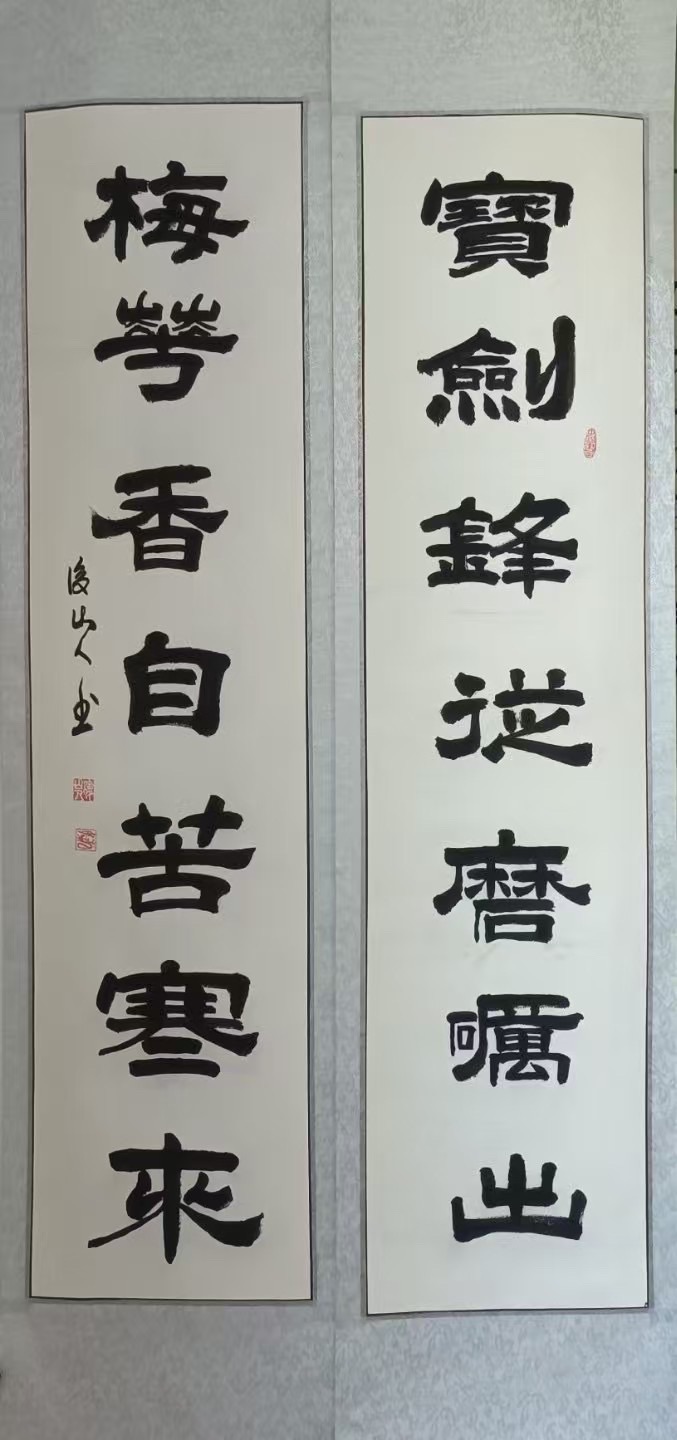 寶劍鋒從磨礪出
梅華香自苦寒來
山人書